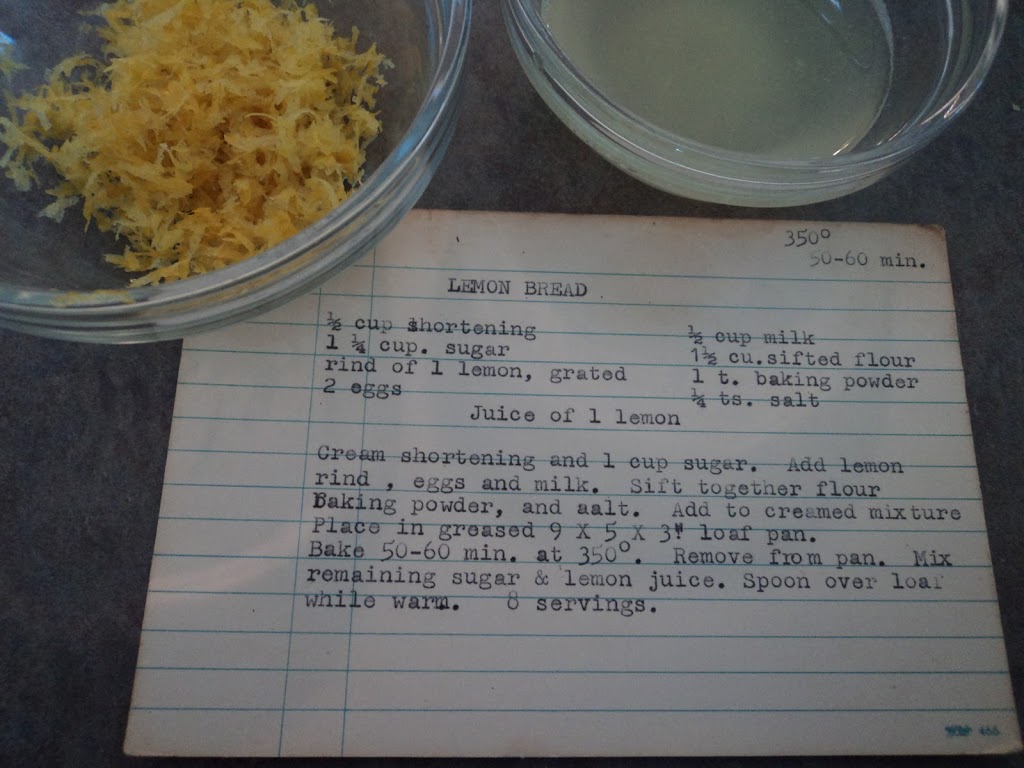 350°
50-60 min.
LEMON BREAD
½ cup shortening
1 ¼ cup. sugar
rind of 1 lemon, grated
2 eggs
½ cup milk
1½ cu.sifted flour
1 t. baking powder
¼ ts. salt
Juice of 1 lemon
Cream shortening and 1 cup sugar. Add lemon
rind , eggs and milk. Sift together flour
Baking powder, and aalt. Add to creamed mixture
Place in greased 9 X 5 X 3" loaf pan.
Bake 50-60 min. at 350°. Remove from pan. Mix
remaining sugar & lemon juice. Spoon over loaf
while warm. 8 servings.